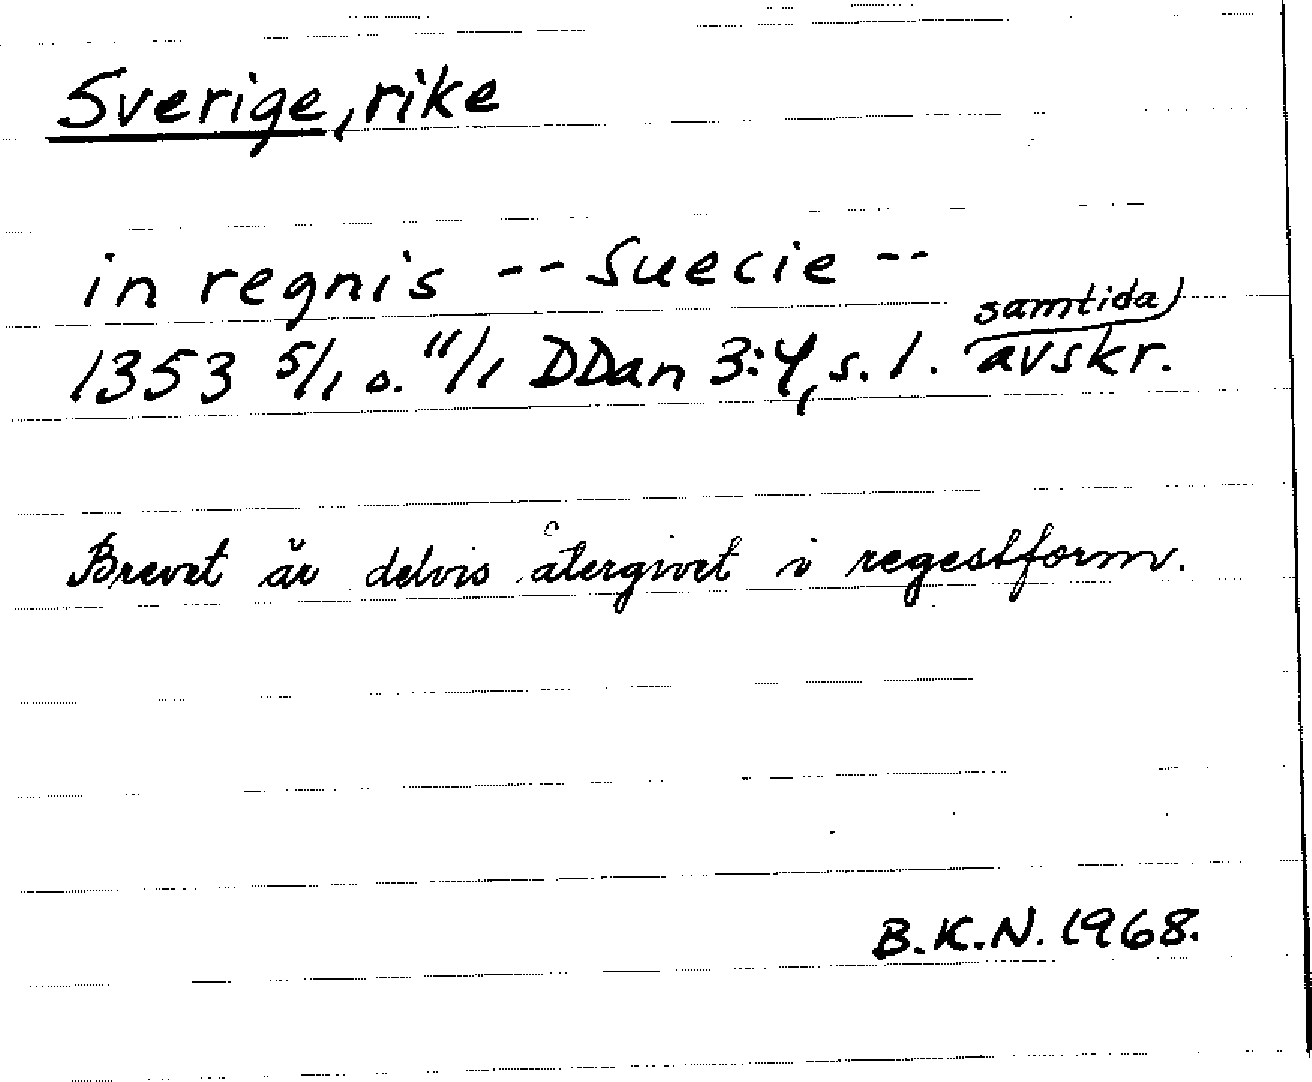 Sverige, rike
in regnis -- Suecie --
1353 5/1 o. 11/1 DDan 3:4, s. 1. samtida avskr.
Brevet är delvis återgivet i regestform.
B.K.N. 1968.